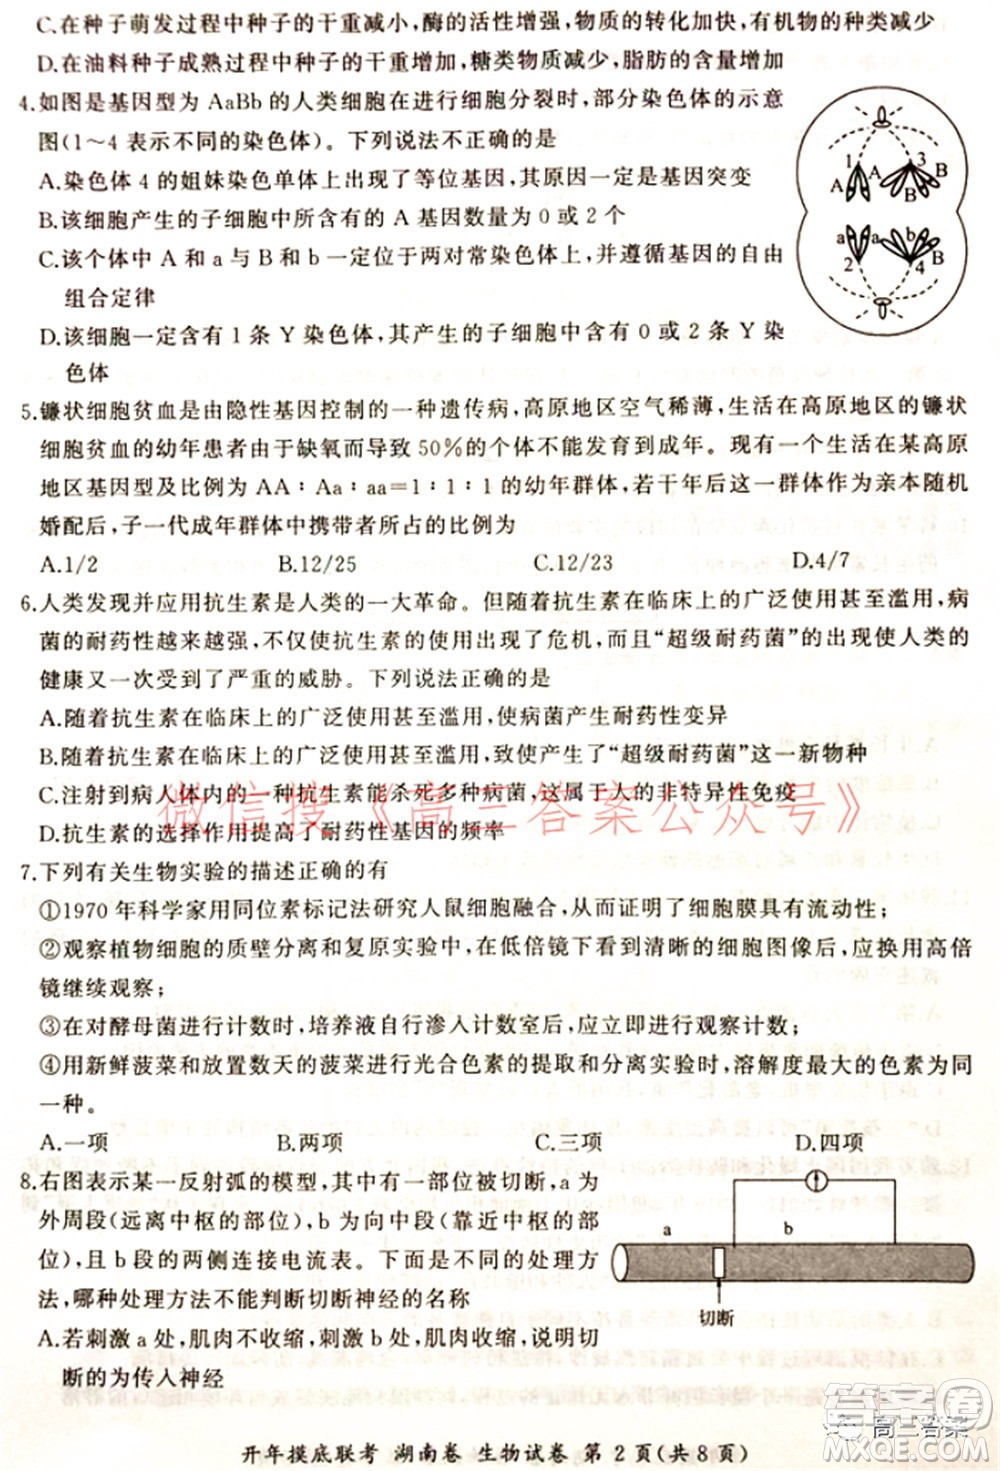 C.在种子萌发过程中种子的干重减少,酶的活性增强,物质的转化加快,有机物的种类减少
D.在油料种子成熟过程中种子的干重增加,糖类物质减少,脂肪的含量增加
4.如图是基因型为 AaBb 的人类细胞在进行细胞分裂时,部分染色体的示意
图(1～4 表示不同的染色体)。下列说法不正确的是
A.染色体 4 的姐妹染色单体上出现了等位基因,其原因一定是基因突变
B.该细胞产生的子细胞中所含有的 A 基因数量为 0 或 2 个
C.该个体中 A 和 a 与 B 和 b 一定位于两对常染色体上,并遵循基因的自由
组合定律
D.该细胞一定含有 1 条 Y 染色体,其产生的子细胞中含有 0 或 2 条 Y 染
色体
1 3
A A B B
a a b B
2 4
5.镰状细胞贫血是由隐性基因控制的一种遗传病,高原地区空气稀薄,生活在高原地区的镰状
细胞贫血的幼年患者由于缺氧而导致 50%的个体不能发育到成年。现有一个生活在某高原
地区基因型及比例为 AA∶Aa∶aa=1∶1∶1 的幼年群体,若需要这一群体作为亲本随机
婚配后,子一代成年群体中携带者所占的比例为
A.1/2 B.12/25 C.12/23 D.4/7
6.人类发现并应用抗生素是人类的一大革命。但随着抗生素在临床上的广泛使用甚至滥用,病
菌的耐药性越来越强,不仅使抗生素的使用出现了危机,而且“超级耐药菌”的出现使人类的
健康又一次受到了严重的威胁。下列说法正确的是
A.随着抗生素在临床上的广泛使用甚至滥用,使病菌产生耐药性变异
B.随着抗生素在临床上的广泛使用甚至滥用,致使产生了“超级耐药菌”这一新物种
C.注射到病人体内的一种抗生素能杀死多种病菌,这属于人的非特异性免疫
微信搜《高三答案公众号》
D.抗生素的选择作用提高了耐药性基因的频率
7.下列有关生物实验的描述正确的有
①1970 年科学家用同位素标记法研究人鼠细胞融合,从而证明了细胞膜具有流动性;
②观察植物细胞的质壁分离和复原实验中,在低倍镜下看到清晰的细胞图像后,应换用高倍
镜继续观察;
③在对酵母菌进行计数时,培养液自行渗入计数室后,应立即进行观察计数;
④用新鲜菠菜和放置数天的菠菜进行光合色素的提取和分离实验时,溶解度最大的色素为同
一种。
A.一项 B.两项 C.三项 D.四项
8.右图表示某一反射弧的模型,其中有一部位被切断,a 为
外周段(远离中枢的部位),b 为向中段(靠近中枢的部
位),且 b 段的两侧连接电流表。下面是不同的处理方
法,哪种处理方法不能判断切断神经的名称
A.若刺激 a 处,肌肉不收缩,刺激 b 处,肌肉收缩,说明切
断的为传入神经
a b
切断
高三答案
开年摸底联考 湖南卷 生物试卷 第 2 页(共 8 页)